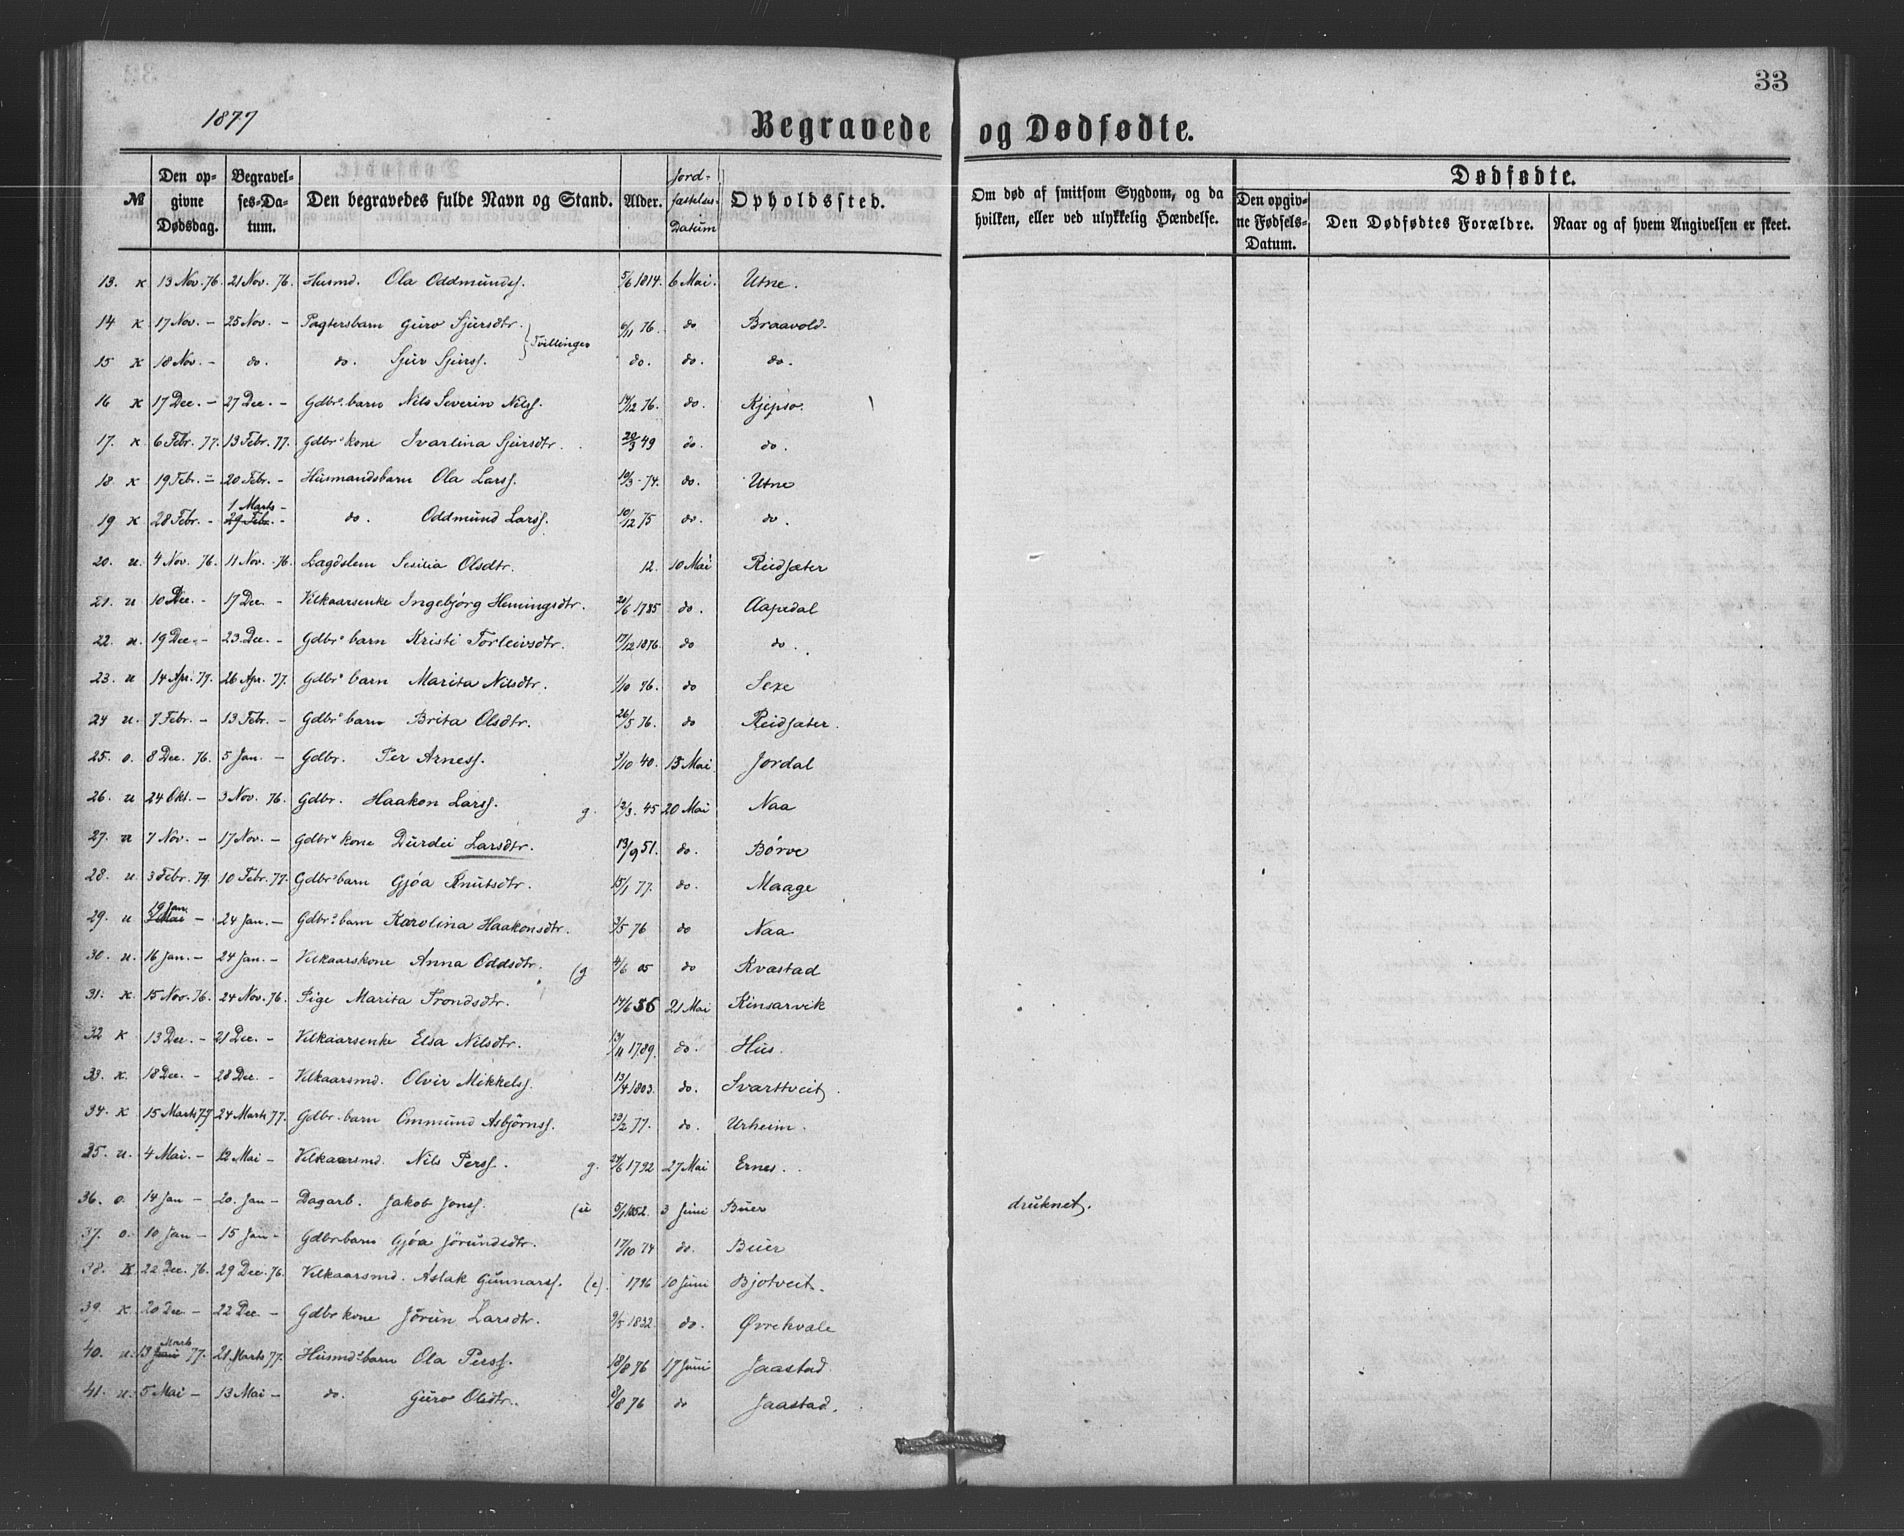 33
1877
Begravede og Dødfødte.
№ Den opgivne Dødsdag. Begravelses-Datum. Den begravedes fulde Navn og Stand. Alder. Jordfæstelses Datum Opholdssted. Om død af smitsom Sygdom, og da hvilken, eller ved ulykkelig Hændelse. Dødfødte. Den opgivne Fødsels-Datum. Den Dødfødtes Forældre. Naar og af hvem Angivelsen er skeet.
13. K 13 Nov. 76. 21 Nov. 76. Husmd. Ola Oddmundss. 5/6 1814. 6 Mai. Utne.
14 K 17 Nov. – 25 Nov. – Pagtersbarn Guro Sjursdtr. Tvillinger 6/11 76. do Braavold.
15 K 18 Nov. – do. do. Sjur Sjurss. do. do. do.
16 K 17 Dec. – 27 Dec. – Gdbrs barn Nils Severin Nilss. 14/12 76. do. Kjepso.
17. K 6 Febr. 77. 13 Febr. 77. Gdbrs kone Ivarlina Sjursdtr. 20/3 49 do. do.
18. K 19 Febr. – 20 Febr. – Husmandsbarn Ola Larss. 10/3 - 74. do. Utne
19 K 28 Febr. – 1 Marts – 29 Febr. – do. Oddmund Larss. 10/12 75 do. do.
20. u. 4 Nov. 76. 11 Nov. 76. Lagdslem Sesilia Olsdtr. 12. 10 Mai Reidsæter
21. u 10 Dec. – 17 Dec. – Vilkaarsenke Ingebjørg Hemingsdtr. 21/6 1785 do. Aapedal
22. u. 19 Dec. – 23 Dec. – Gdbrs barn Kristi Torleivsdtr. 17/12 1876. do do.
23. u 14 Apr. 77. 26 Apr. 77. Gdbrs barn Marita Nilsdtr. 1/10 76. do Sexe
24 u. 7 Febr. – 13 Febr. – Gdbrs barn Brita Olsdtr. 26/5 76. do Reidsæter.
25. o. 8 Dec. 76. 5 Jan. – Gdbr. Per Arness. 3/10 40. 13 Mai Jordal
26. u 24 Okt. – 3 Nov. 76. Gdbr. Haakon Larss. g. 12/3. 45 20 Mai Naa
27. u 7 Nov. – 17 Nov. – Gdbrs kone Durdei Larsdtr. 13/9 51. do. Børve
28. u. 3 Febr. 79 10 Febr. 77. Gdbrs barn Gjøa Knutsdtr. 15/1 77. do. Maage
29. u 19 Jan. Mai – 24 Jan. – Gdbrs barn Karolina Haakonsdtr. 3/5 76 do Naa
30. u. 16 Jan. – 24 Jan. – Vilkaarskone Anna Oddsdtr. (g 4/6 05 do Kvæstad
31. K 15 Nov. 76. 24 Nov. 76. Pige Marita Trondsdtr. 14/6 56 21 Mai Kinsarvik
32 K 13 Dec – 21 Dec. – Vilkaarsenke Elsa Nilsdtr. 13/11 1789. do. Hus.
33. K. 18 Dec. – 28 Dec. – Vilkaarsmd. Olvir Mikkelss. 13/4 1803. do. Svarttveit.
34. K 15 Marts 77 24 Marts 77. Gdbr. barn Ommund Asbjørnss. 23/2 77. do. Urheim.
35. u. 4 Mai. – 12 Mai – Vilkaarsmd. Nils Perss. g. 24/6 1792 27 Mai Ernes.
36. o. 14 Jan – 20. Jan – Dagarb. Jakob Jonss. (u 5/1 1852. 3 Juni Buer druknet.
37. o. 10 Jan – 15 Jan – Gdbr barn Gjøa Jörundsdtr. 17/10 74 do. Buer
38. K 22 Dec. 76. 29 Dec. 76. Vilkaarsmd. Aslak Gunnarss. (e). 1796 10 Juni Bjotveit.
39. K 20 Dec – 22 Dec – Gdbr kone Jörun Larsdtr. 9/5 1832. do. Øvrekvale
40. u. 13 Marts Juni 77. 21 Marts 77. Husmds barn Ola Perss. 18/8 76 17 Juni Jaastad.
41. u. 5 Mai – 13 Mai – do. Guro Olsdtr. 8/8 76 do Jaastad.